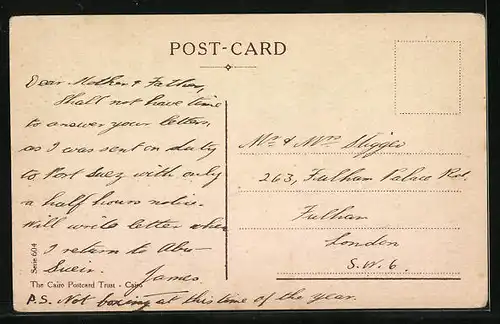 POST-CARD
Dear Mother & Father,
Shall not have time
to answer your letters
as I was sent on duty
to Port Suez with only
a half hours notice.
Will write letter when
I return to Abu-
Sueir. James
P.S. Not boxing at this time of the year.
Mr & Mrs
263, Fulham Palace Rd.
Fulham
London
S.W.6.
Serie 604
The Cairo Postcard Trust - Cairo